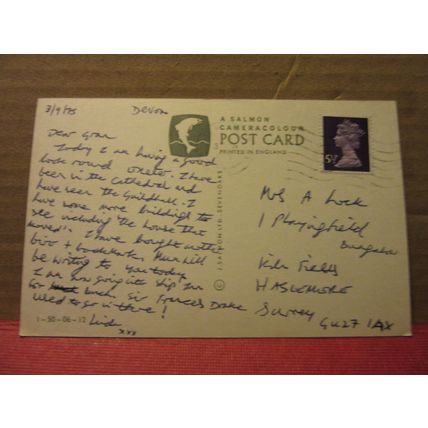 3/9/75 Devon
Dear Gran
Today I am having a good
look round Exeter. I have
been in the Cathedral and
have seen the Guildhall. I
have some more buildings to
see including the house that
moved". I have bought
biro + bookmarks Mum will
be writing to you today
I am now going into Ship Inn
for lunch, Sir Frances Drake
used to go in there!
Linda
xxx
1-50-06-12
A SALMON
CAMERACOLOUR
POST CARD
PRINTED IN ENGLAND
J. SALMON LTD. SEVENOAKS
©
5½P
Mrs A Lock
1 Playingfield
Bungalow
Fields
HASLEMERE
Surrey
GU27 1AX